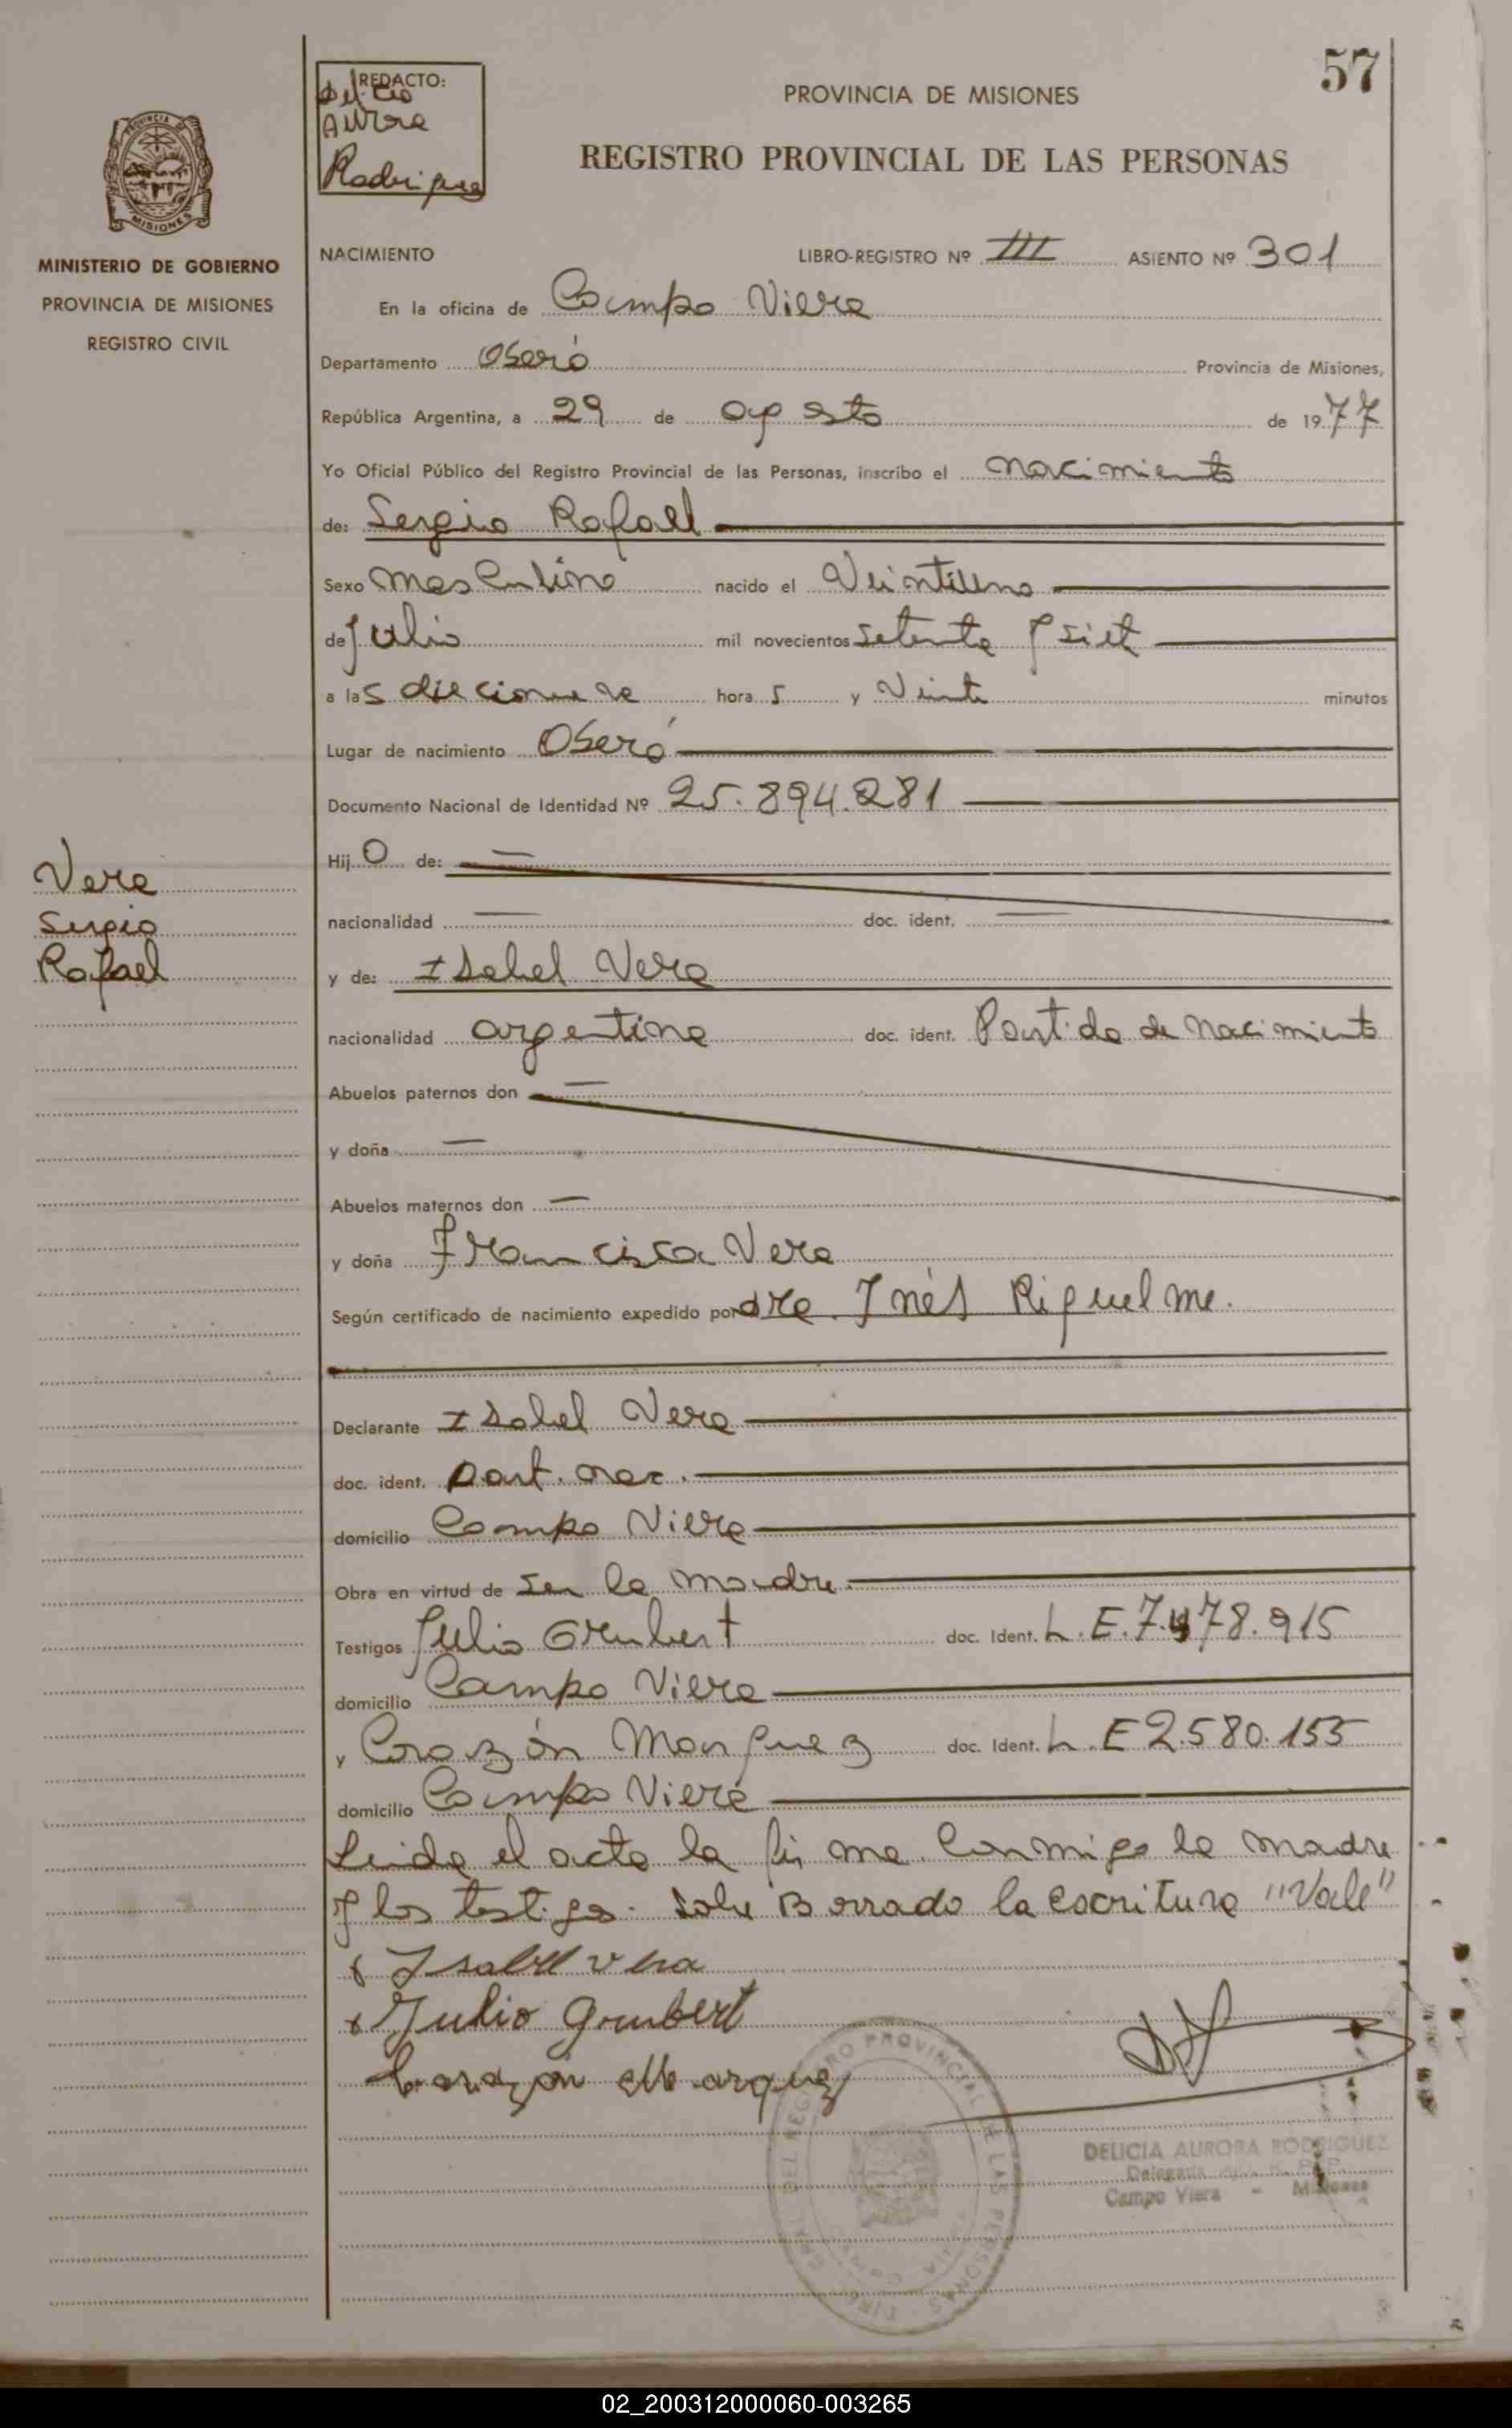 57
REDACTO:
Delicia
Aurora
Rodriguez
PROVINCIA DE MISIONES
REGISTRO PROVINCIAL DE LAS PERSONAS
PROVINCIA DE
MISIONES
MINISTERIO DE GOBIERNO
PROVINCIA DE MISIONES
REGISTRO CIVIL
NACIMIENTO LIBRO-REGISTRO Nº III ASIENTO Nº 301
En la oficina de Campo Viera
Departamento Oberá Provincia de Misiones,
República Argentina, a 29 de agosto de 1977
Yo Oficial Público del Registro Provincial de las Personas, inscribo el nacimiento
de: Sergio Rafael
Sexo masculino nacido el Veintiuno
de Julio mil novecientos setenta y siete
a las diecinueve horas y Veinte minutos
Lugar de nacimiento Oberá
Documento Nacional de Identidad Nº 25.894.281
Hijo de: —
nacionalidad — doc. ident. —
y de: Isabel Vera
nacionalidad argentina doc. ident. Partida de nacimiento
Abuelos paternos don —
y doña —
Abuelos maternos don —
y doña Francisca Vera
Según certificado de nacimiento expedido por dra. Inés Riquelme.
Vera
Sergio
Rafael
Declarante Isabel Vera
doc. ident. Part. nac.
domicilio Campo Viera
Obra en virtud de ser la madre.
Testigos Julio Grubert doc. Ident. L.E.7.478.915
domicilio Campo Viera
y Corazón Marquez doc. Ident. L.E 2.580.155
domicilio Campo Viera
Leida el acta la firma conmigo la madre
y los testigos. Sobre Borrado la escritura "Vale"
x Isabel vera
x Julio Grubert
Corazon Marquez
DELICIA AURORA RODRIGUEZ
Delegada R. P. P.
Campo Viera - Misiones
DEL REGISTRO PROVINCIAL DE LAS PERSONAS
02_200312000060-003265